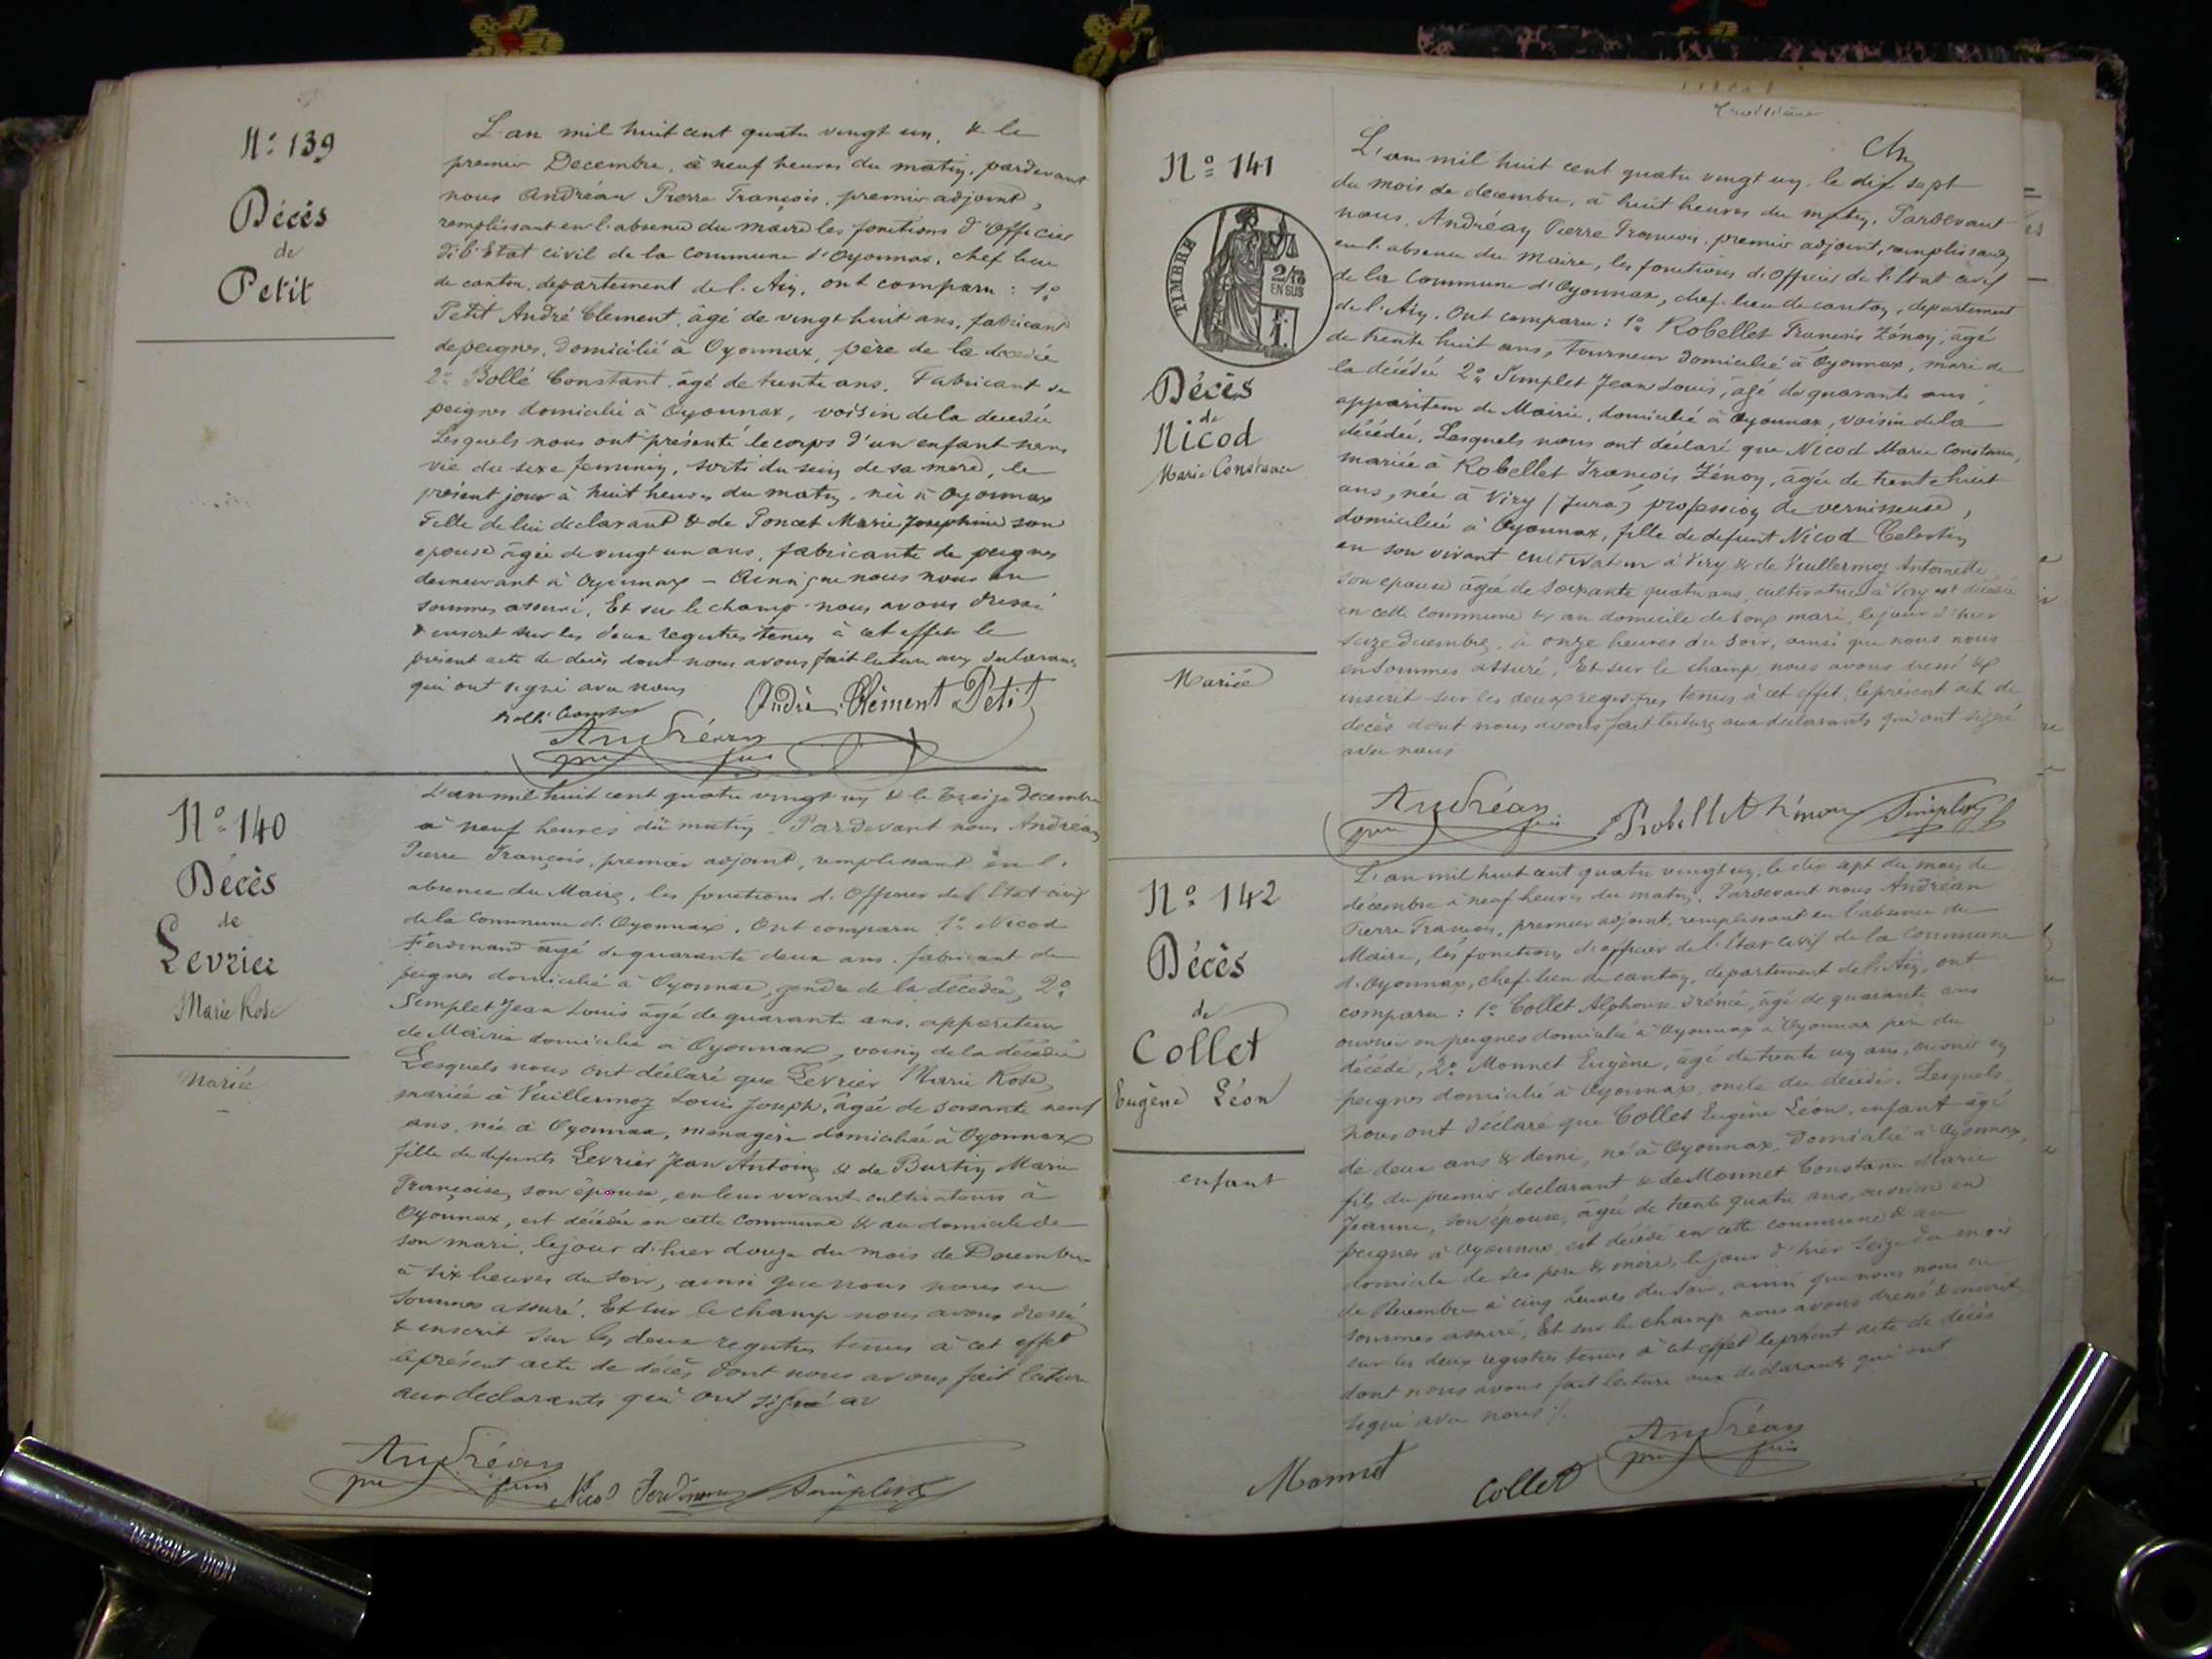 N° 139
Décès
de
Petit
L'an mil huit cent quatre vingt un, & le
premier Decembre, à neuf heures du matin, pardevant
nous Andréan Pierre François, premier adjoint,
remplissant en l'absence du maire les fonctions d'Officier
de l'Etat civil de la Commune d'Oyonnax, chef lieu
de canton, departement de l'Ain, ont comparu : 1°
Petit André Clement, âgé de vingt huit ans, fabricant
de peignes, domicilié à Oyonnax, père de la décédée
2° Bollé Constant, âgé de trente ans, Fabricant de
peignes domicilié à Oyonnax, voisin de la decedée
Lesquels nous ont présenté le corps d'un enfant sans
vie du sexe feminin, sorti du sein de sa mere, le
présent jour à huit heures du matin, né à Oyonnax
Fille de lui declarant & de Poncet Marie Josephine son
epouse âgée de vingt un ans, fabricante de peignes
demeurant à Oyonnax - Ainsi que nous nous en
sommes assuré. Et sur le champ nous avons dressé
& inscrit sur les deux registres tenus à cet effet le
présent acte de décès dont nous avons fait lecture aux déclarants
qui ont signé avec nous
André Clément Petit
Andréan
N° 140
Décès
de
Levrier
Marie Rose
Mariée
L'an mil huit cent quatre vingt un & le treize decembre
à neuf heures du matin. Pardevant nous Andréan
Pierre François, premier adjoint, remplissant en l'
absence du Maire, les fonctions d'Officier de l'Etat civil
de la Commune d'Oyonnax. Ont comparu 1° Nicod
Ferdinand âgé de quarante deux ans, fabricant de
peignes domicilié à Oyonnax, gendre de la décédée, 2°
Simplet Jean Louis âgé de quarante ans, appariteur
de Mairie domicilié à Oyonnax, voisin de la décédée
Lesquels nous ont déclaré que Levrier Marie Rose,
mariée à Vuillermoz Louis Joseph, âgée de soixante neuf
ans, née à Oyonnax, ménagère domiciliée à Oyonnax
fille de defunts Levrier Jean Antoine & de Burtin Marie
Françoise, son épouse, en leur vivant cultivateurs à
Oyonnax, est décédée en cette Commune & au domicile de
son mari, le jour d'hier douze du mois de Decembre
à six heures du soir, ainsi que nous nous en
sommes assuré. Et sur le champ nous avons dressé
& inscrit sur les deux registres tenus à cet effet
le présent acte de décès dont nous avons fait lecture
aux declarants qui ont signé av
Andréan
Nicod Ferdinand Simplet
N° 141
TIMBRE
2/10
EN SUS
F.
1.
Décès
de
Nicod
Marie Constance
Mariée
L'an mil huit cent quatre vingt un, le dix sept
du mois de decembre, à huit heures du matin. Pardevant
nous, Andréan Pierre François, premier adjoint, remplissant
en l'absence du Maire, les fonctions d'Officier de l'Etat civil
de la Commune d'Oyonnax, chef-lieu de canton, departement
de l'Ain. Ont comparu : 1° Robellet François Zénon, âgé
de trente huit ans, tourneur domicilié à Oyonnax, mari de
la décédée 2° Simplet Jean Louis, âgé de quarante ans,
appariteur de Mairie, domicilié à Oyonnax, voisin de la
décédée. Lesquels nous ont declaré que Nicod Marie Constance,
mariée à Robellet François Zénon, âgée de trente huit
ans, née à Viry (Jura) profession de vernisseuse,
domiciliée à Oyonnax, fille de defunt Nicod Celestin
en son vivant cultivateur à Viry & de Vuillermoz Antoinette
son epouse âgée de soixante quatre ans, cultivatrice à Viry est décédée
en cette commune & au domicile de son mari, le jour d'hier
seize decembre, à onze heures du soir, ainsi que nous nous
en sommes assuré. Et sur le champ nous avons dressé &
inscrit sur les deux registres tenus à cet effet, le présent acte de
decès dont nous avons fait lecture aux declarants qui ont signé
avec nous
Andréan Robellet Zénon Simplet
N° 142
Décès
de
Collet
Eugène Léon
enfant
L'an mil huit cent quatre vingt un, le dix sept du mois de
décembre à neuf heures du matin. Pardevant nous Andréan
Pierre François, premier adjoint, remplissant en l'absence du
Maire, les fonctions d'officier de l'Etat civil de la Commune
d'Oyonnax, chef-lieu de canton, departement de l'Ain, ont
comparu : 1° Collet Alphonse Irénée, âgé de quarante ans
ouvrier en peignes domicilié à Oyonnax à Oyonnax père du
décédé, 2° Monnet Eugène, âgé de trente un ans, ouvrier en
peignes domicilié à Oyonnax, oncle du décédé. Lesquels
nous ont déclaré que Collet Eugène Léon, enfant âgé
de deux ans & demi, né à Oyonnax, domicilié à Oyonnax,
fils du premier declarant & de Monnet Constance Marie
Jeanne, son épouse, âgée de trente quatre ans, ouvrière en
peignes à Oyonnax est décédé en cette commune & au
domicile de ses père & mère, le jour d'hier seize du mois
de Decembre à cinq heures du soir, ainsi que nous nous en
sommes assuré. Et sur le champ nous avons dressé & inscrit
sur les deux registres tenus à cet effet le présent acte de décès
dont nous avons fait lecture aux declarants qui ont
signé avec nous.
Andréan
Monnet Collet